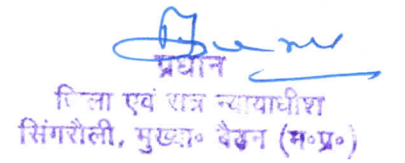 प्रधान
जिला एवं सत्र न्यायाधीश
सिंगरौली, मुख्या॰ वैढ़न (म॰प्र॰)